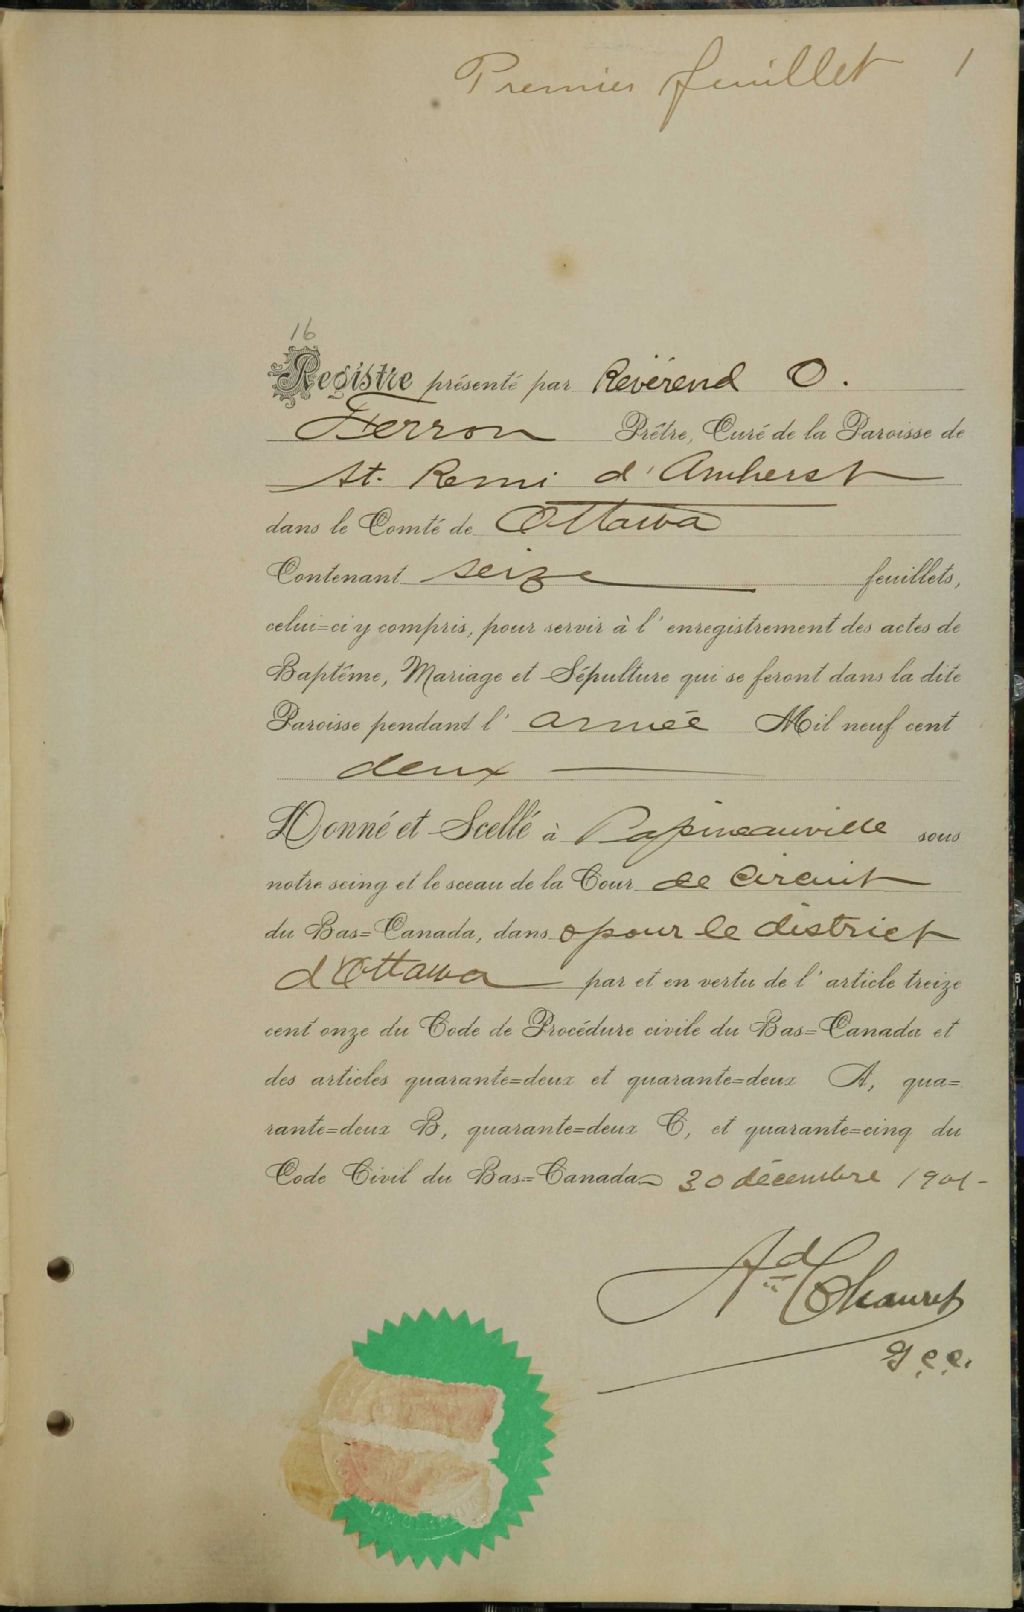 Premier feuillet 1
16
Registre présenté par Révérend O.
Ferron Prêtre, Curé de la Paroisse de
St. Remi d'Amherst
dans le Comté de Ottawa
Contenant seize feuillets,
celui=ci y compris, pour servir à l'enregistrement des actes de
Baptême, Mariage et Sépulture qui se feront dans la dite
Paroisse pendant l'année Mil neuf cent
deux
Donné et Scellé à Papineauville sous
notre seing et le sceau de la Cour de Circuit
du Bas=Canada, dans & pour le district
d'Ottawa par et en vertu de l'article treize
cent onze du Code de Procédure civile du Bas=Canada et
des articles quarante=deux et quarante=deux A, qua=
rante=deux B, quarante=deux C, et quarante=cinq du
Code Civil du Bas=Canada 30 décembre 1901-
Ad Chauret
G.C.C.